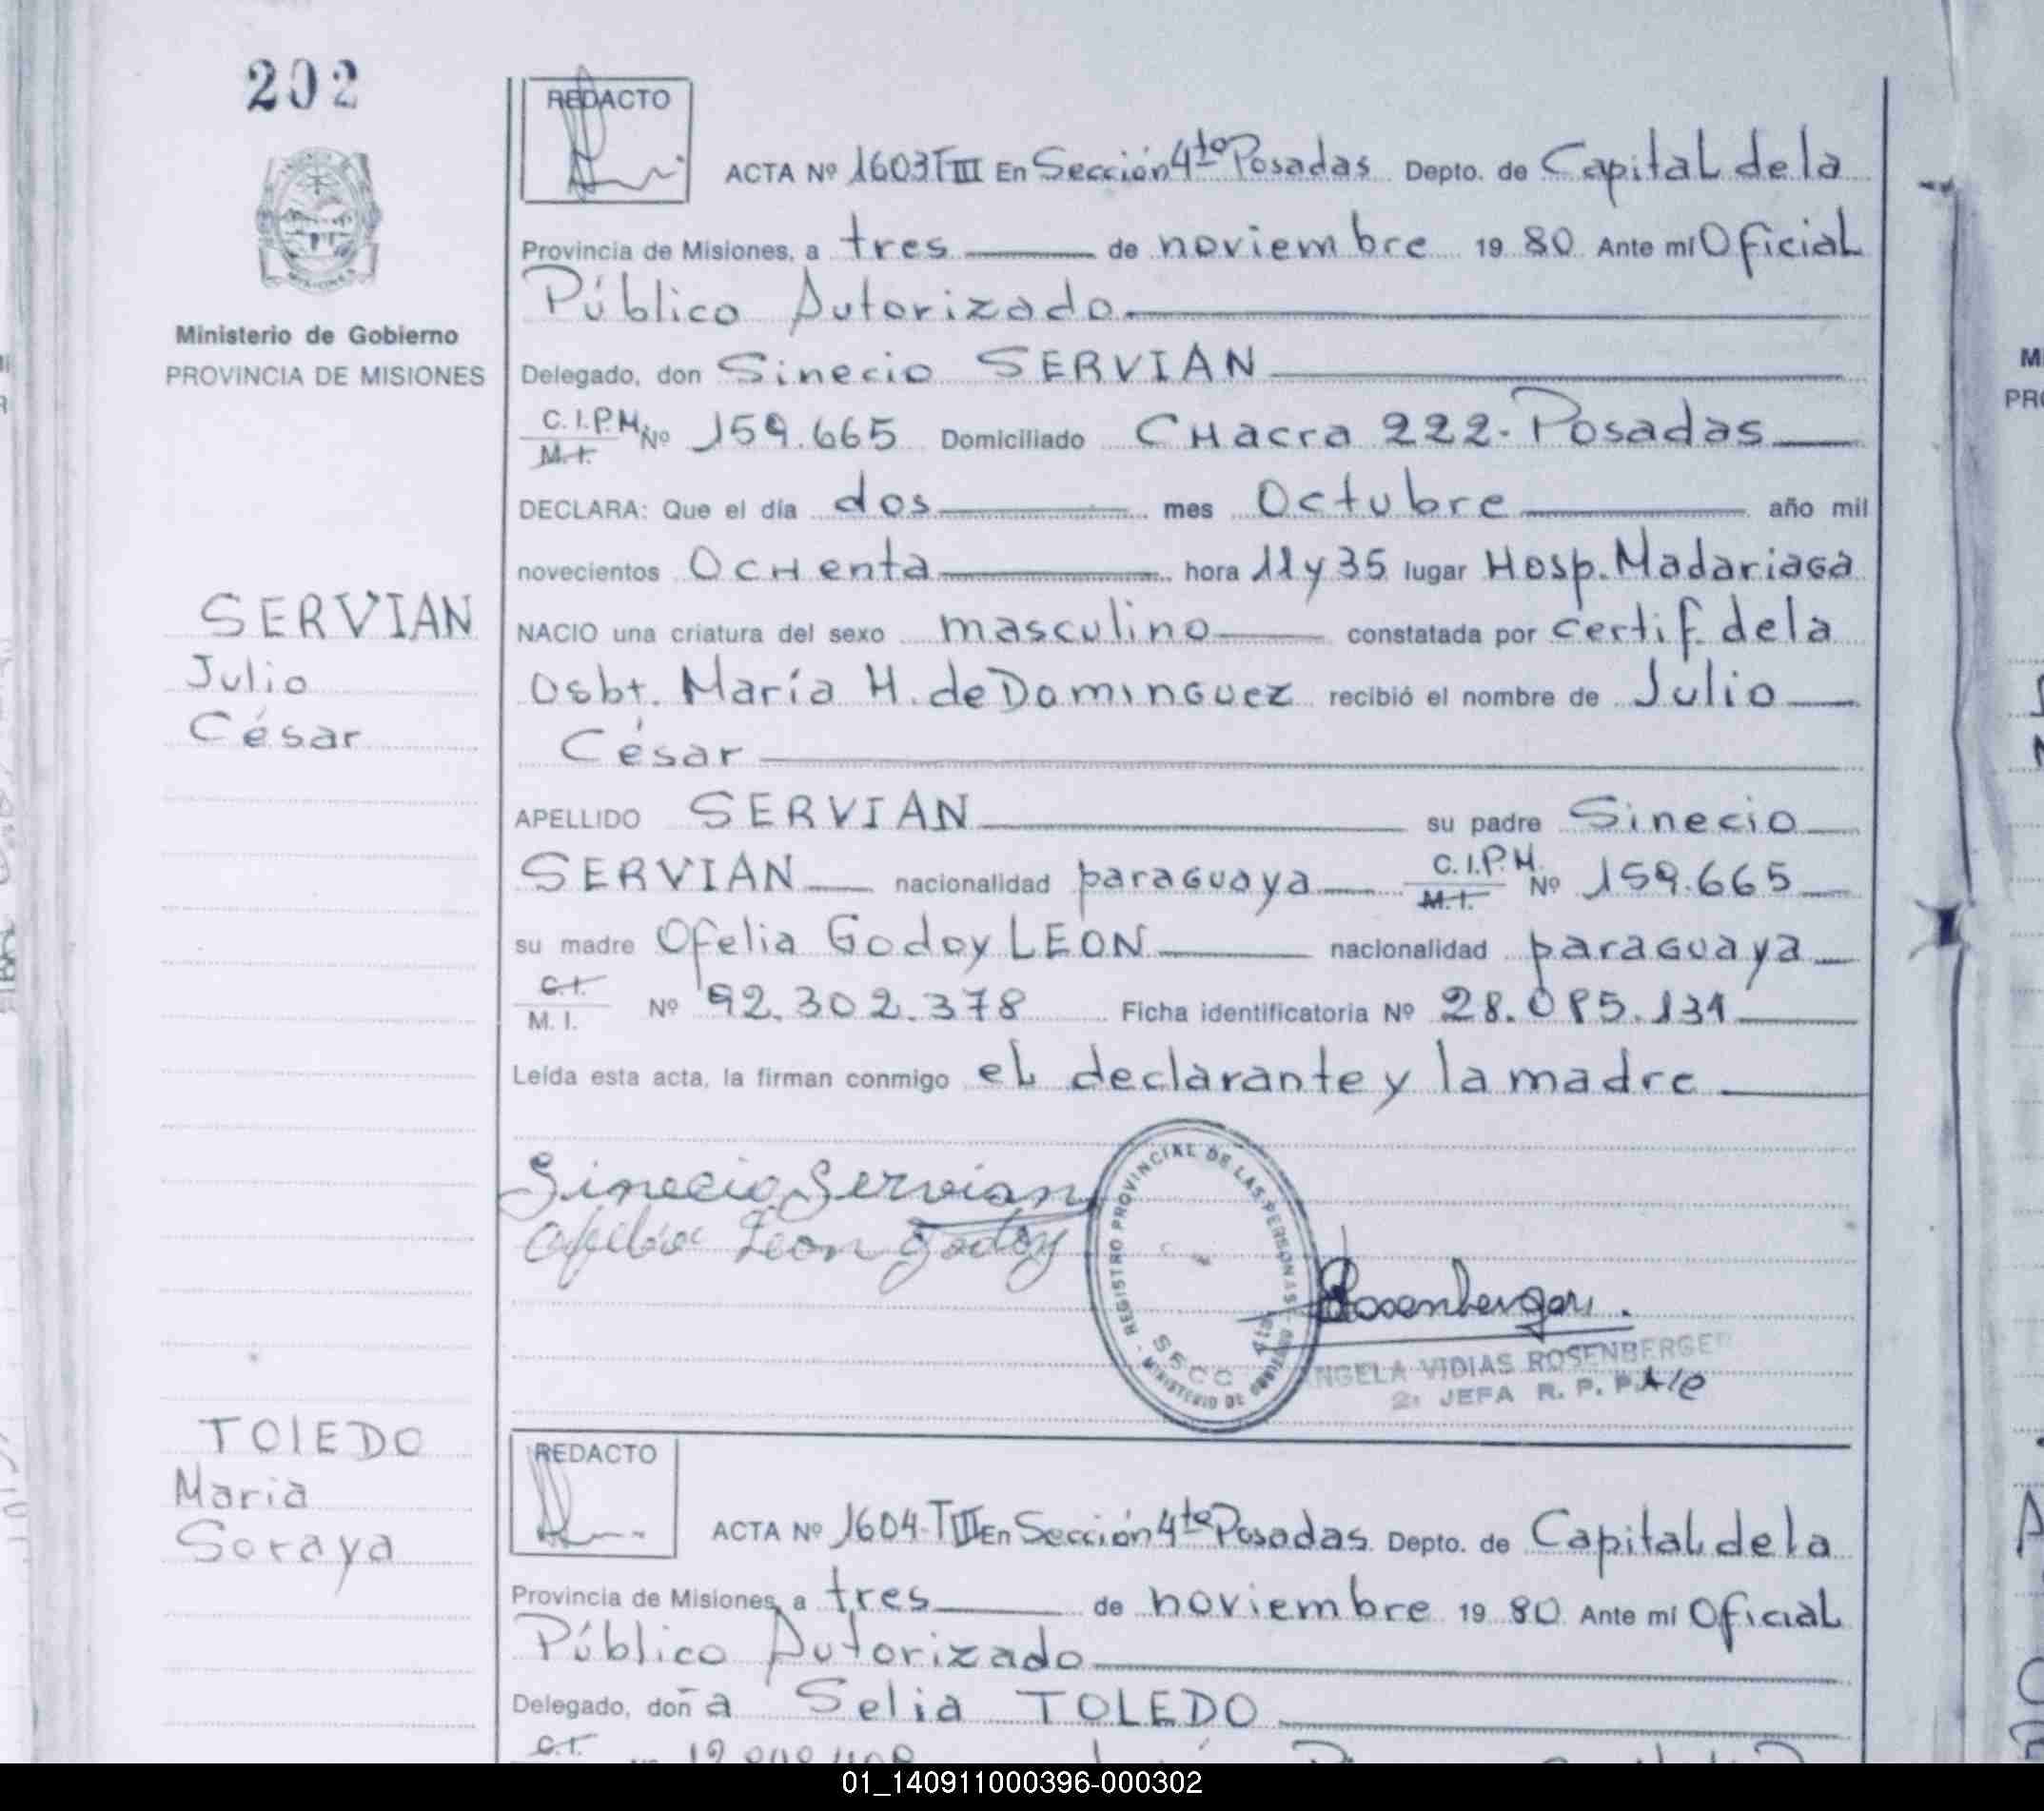 202
REDACTO
ACTA Nº 1603 T III En Sección 4ta Posadas Depto. de Capital de la
Provincia de Misiones, a tres de noviembre 19 80 Ante mí Oficial
Público Autorizado
Ministerio de Gobierno
PROVINCIA DE MISIONES
Delegado, don Sinecio SERVIAN
C.I.P.M. M.I. Nº 159.665 Domiciliado CHacra 222-Posadas
DECLARA: Que el día dos mes Octubre año mil
novecientos OcHenta hora 11 y 35 lugar Hosp. Madariaga
SERVIAN
Julio
César
NACIO una criatura del sexo masculino constatada por certif. de la
Osbt. María H. de Dominguez recibió el nombre de Julio
César
APELLIDO SERVIAN su padre Sinecio
SERVIAN nacionalidad paraguaya C.I.P.M. M.I. Nº 159.665
su madre Ofelia Godoy LEON nacionalidad paraguaya
C.I. M.I. Nº 92.302.378 Ficha identificatoria Nº 28.085.131
Leída esta acta, la firman conmigo el declarante y la madre
Sinecio Servian
Ofelia Leon Godoy
REGISTRO PROVINCIAL DE LAS PERSONAS - MINISTERIO DE GOBIERNO
SECC 4ta
Rosenberger
ANGELA VIDIAS ROSENBERGER
2ª JEFA R. P. P. A/C
TOLEDO
Maria
Soraya
REDACTO
ACTA Nº 1604-T III En Sección 4ta Posadas Depto. de Capital de la
Provincia de Misiones, a tres de noviembre 19 80 Ante mí Oficial
Público Autorizado
Delegado, doña Selia TOLEDO
C.I.
01_140911000396-000302